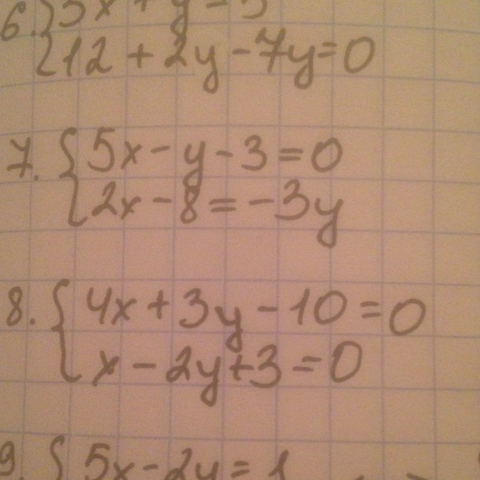 6. 5x + y - 5
12 + 2y - 7y = 0
7. 5x - y - 3 = 0
2x - 8 = -3y
8. 4x + 3y - 10 = 0
x - 2y + 3 = 0
9. 5x - 2y = 1